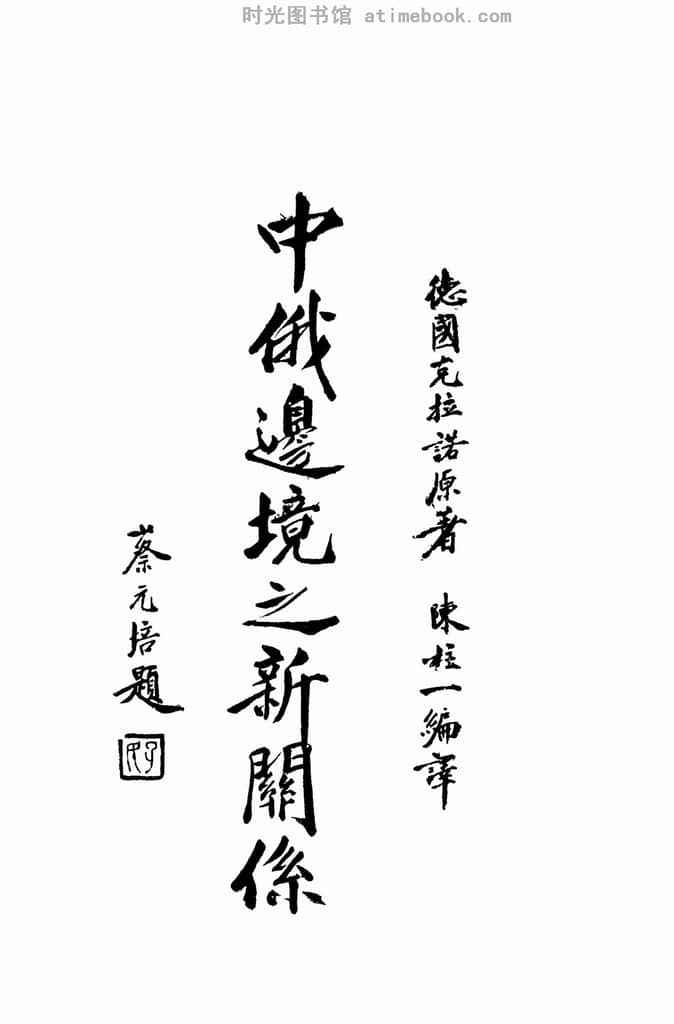 时光图书馆 atimebook.com
德國克拉諾原著 陳柱一編譯
中俄邊境之新關係
蔡元培題